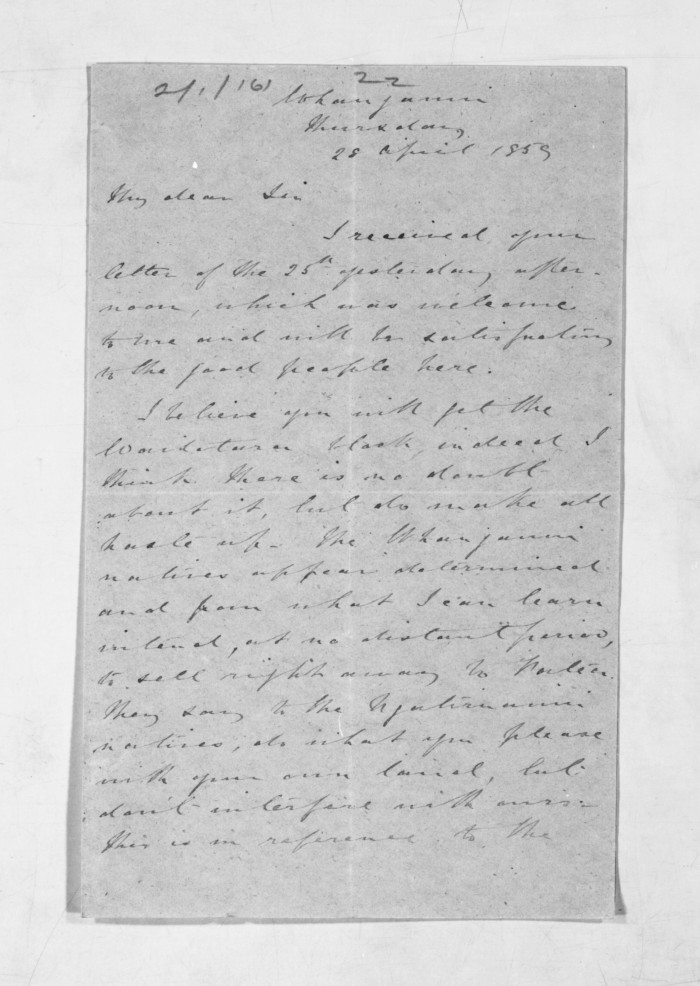 2/1/161 22
Whanganui
Thursday
28 April 1859
My dear Sir
I received your
letter of the 25th yesterday after-
noon, which was welcome
to me and will be satisfactory
to the good people here.
I believe you will get the
Waitotara block, indeed I
think there is no doubt
about it, but do make all
haste up - The Whanganui
natives appear determined
and from what I can learn
intend, at no distant period,
to sell right away to
They say to the Ngatiruanui
natives, do what you please
with your own land, but
don't interfere with ours -
this is in reference to the